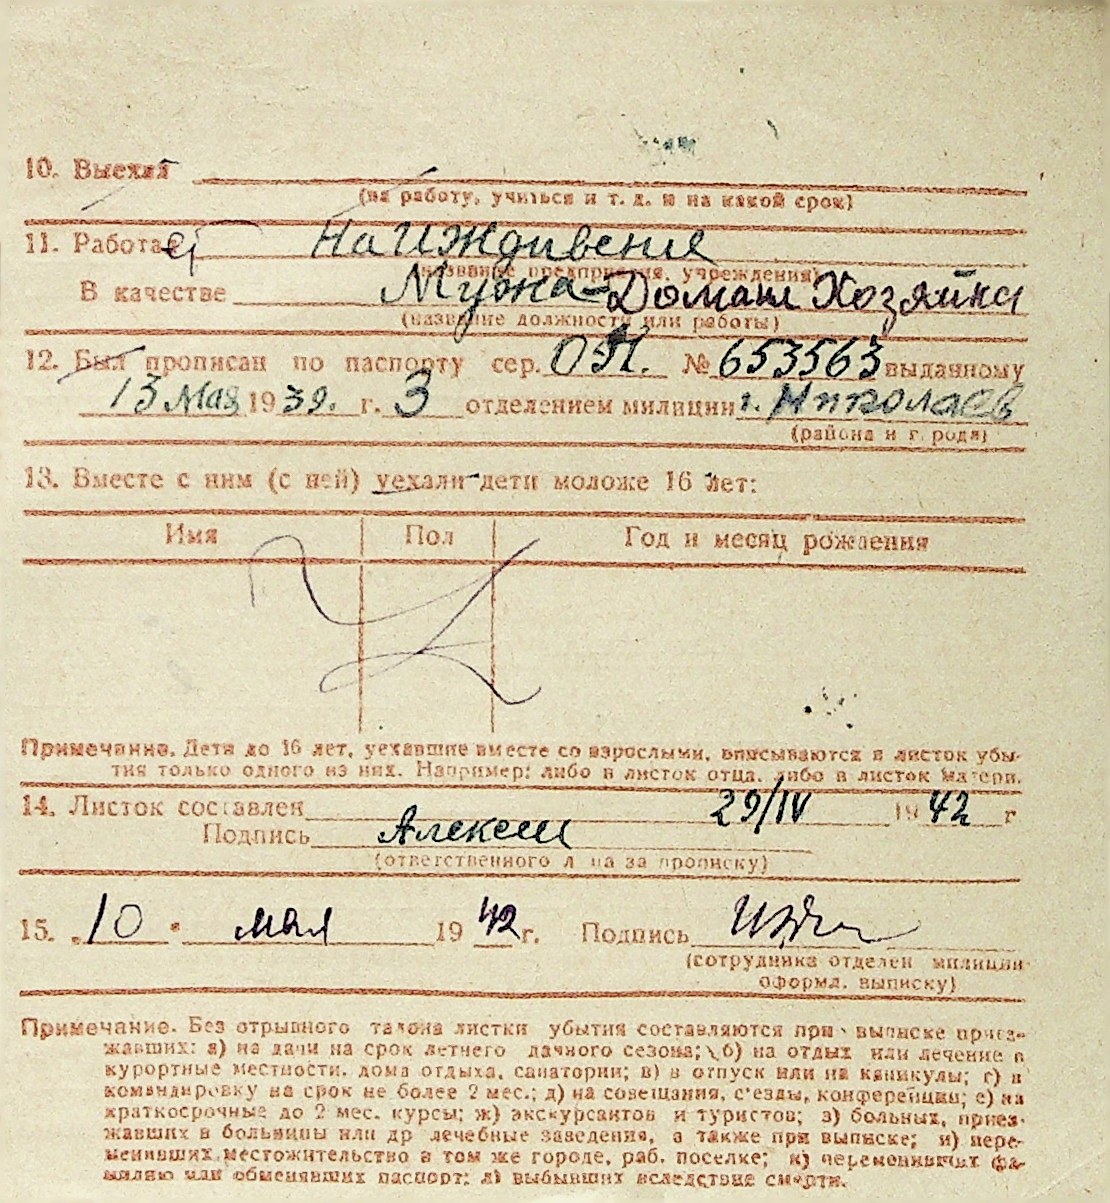 10. Выехал
(на работу, учиться и т. д. и на какой срок)
11. Работал На Иждивение
(название предприятия, учреждения)
В качестве Мужа - Домаш Хозяйка
(название должности или работы)
12. Был прописан по паспорту сер. ОЯ. № 653563 выданному
13 Мая 1939. г. 3 отделением милиции г. Николаев
(района и города)
13. Вместе с ним (с ней) уехали дети моложе 16 лет:
Имя Пол Год и месяц рождения
Примечание. Дети до 16 лет, уехавшие вместе со взрослыми, вписываются в листок убы-
тия только одного из них. Например: либо в листок отца, либо в листок матери.
14. Листок составлен 29/IV 1942 г
Подпись Алексеш
(ответственного лица за прописку)
15. „10" мая 1942 г. Подпись
(сотрудника отделен милиции
оформл. выписку)
Примечание. Без отрывного талона листки убытия составляются при выписке приез-
жавших: а) на дачи на срок летнего дачного сезона; б) на отдых или лечение в
курортные местности, дома отдыха, санатории; в) в отпуск или на каникулы; г) в
командировку на срок не более 2 мес.; д) на совещания, с'езды, конференции; е) на
краткосрочные до 2 мес. курсы; ж) экскурсантов и туристов; з) больных, приез-
жавших в больницы или др лечебные заведения, а также при выписке; и) пере-
менивших местожительство в том же городе, раб. поселке; к) переменивших фа-
милию или обменявших паспорт; л) выбывших вследствие смерти.